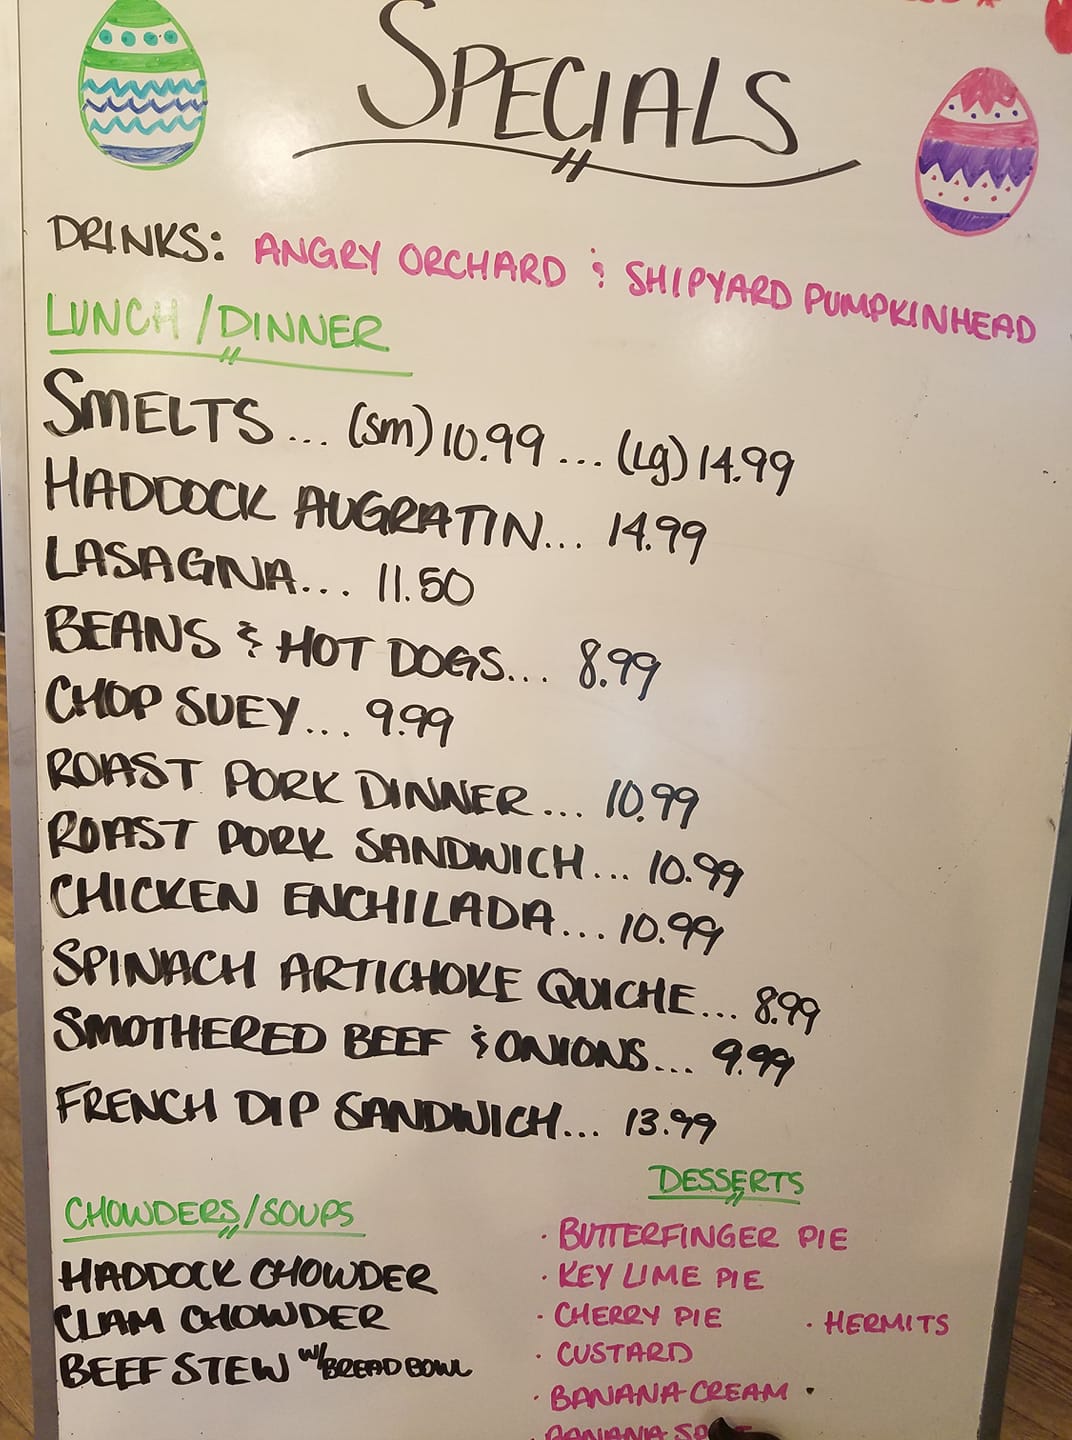 SPECIALS
DRINKS: ANGRY ORCHARD & SHIPYARD PUMPKINHEAD
LUNCH/DINNER
SMELTS... (sm) 10.99 ... (Lg) 14.99
HADDOCK AUGRATIN... 14.99
LASAGNA... 11.50
BEANS & HOT DOGS... 8.99
CHOP SUEY... 9.99
ROAST PORK DINNER... 10.99
ROAST PORK SANDWICH... 10.99
CHICKEN ENCHILADA... 10.99
SPINACH ARTICHOKE QUICHE... 8.99
SMOTHERED BEEF & ONIONS... 9.99
FRENCH DIP SANDWICH... 13.99
CHOWDERS/SOUPS
HADDOCK CHOWDER
CLAM CHOWDER
BEEF STEW w/ BREAD BOWL
DESSERTS
· BUTTERFINGER PIE
· KEY LIME PIE
· CHERRY PIE
· CUSTARD
· BANANA CREAM
BANANA
· HERMITS